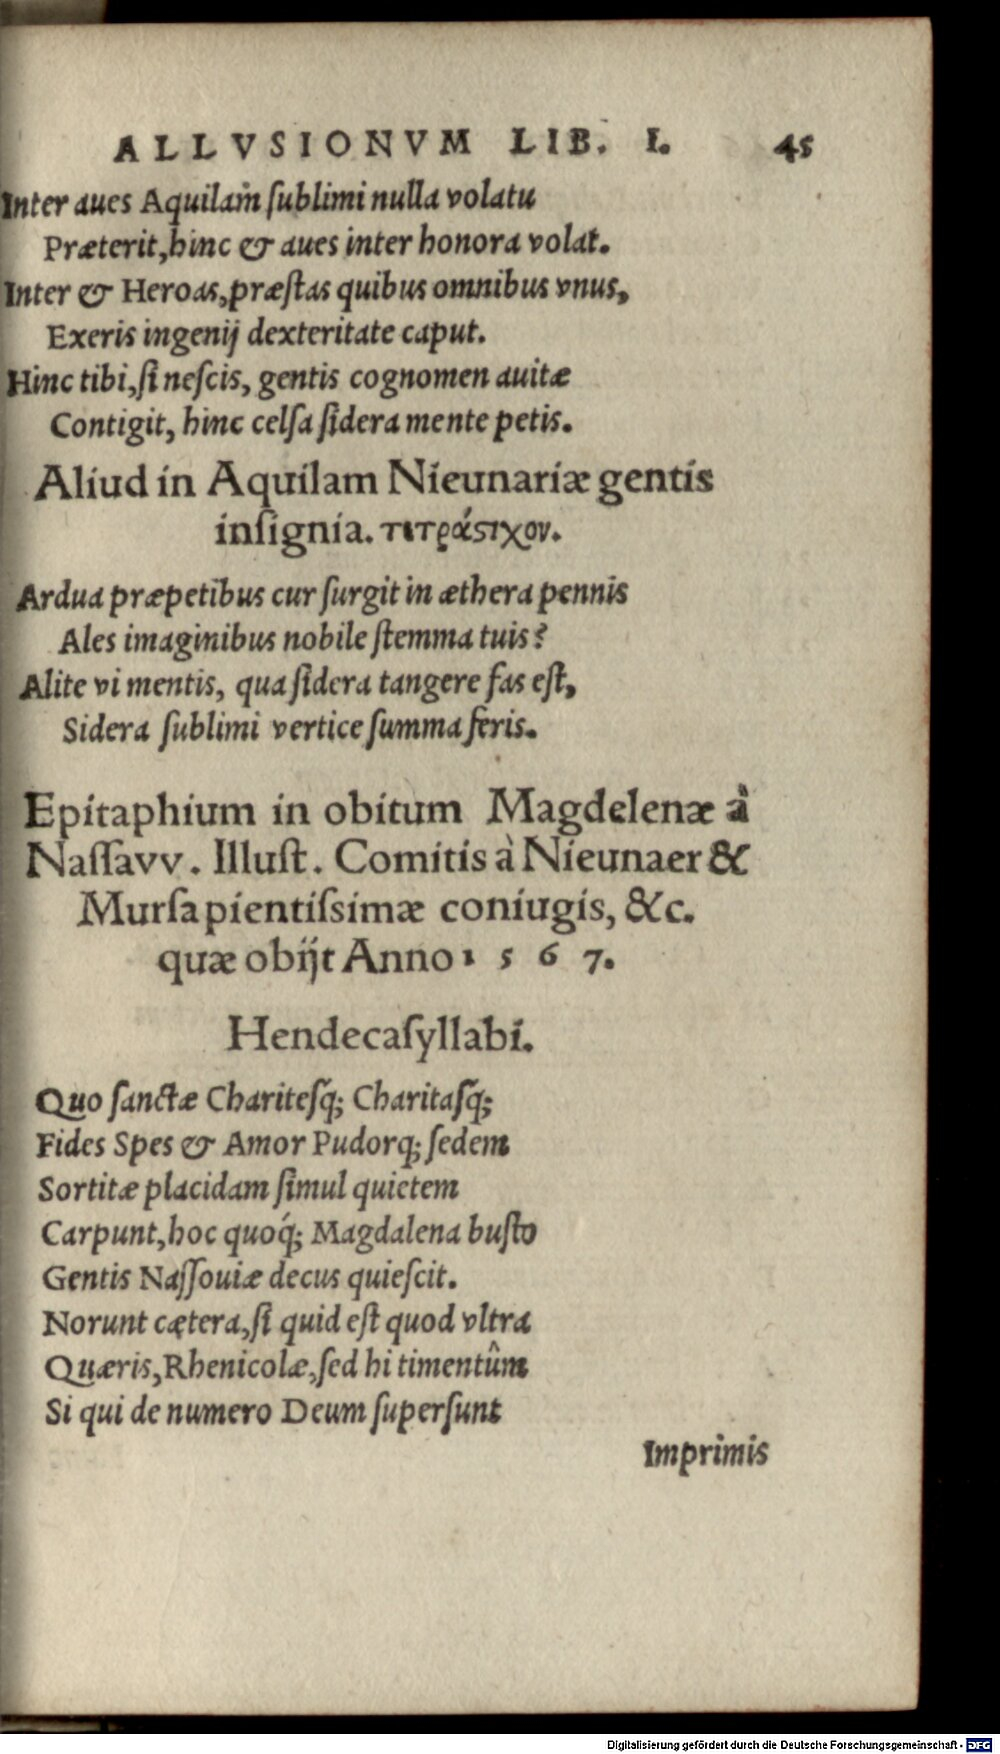 ALLVSIONVM LIB. I. 45
Inter aues Aquilam̀ ſublimi nulla volatu
Præterit, hinc & aues inter honora volat.
Inter & Heroas, præſtas quibus omnibus vnus,
Exeris ingenij dexteritate caput.
Hinc tibi, ſi neſcis, gentis cognomen auitæ
Contigit, hinc celſa ſidera mente petis.
Aliud in Aquilam Nieunariæ gentis
inſignia. τετράςιχον.
Ardua præpetibus cur ſurgit in æthera pennis
Ales imaginibus nobile ſtemma tuis?
Alite vi mentis, qua ſidera tangere fas eſt,
Sidera ſublimi vertice ſumma feris.
Epitaphium in obitum Magdelenæ à
Naſſavv. Illuſt. Comitis à Nieunaer &
Murſa pientiſsimæ coniugis, &c.
quæ obijt Anno 1 5 6 7.
Hendecaſyllabi.
Quo ſanctæ Chariteſq́; Charitaſq́;
Fides Spes & Amor Pudorq́; ſedem
Sortitæ placidam ſimul quietem
Carpunt, hoc quoq́; Magdalena buſto
Gentis Naſſouiæ decus quieſcit.
Norunt cętera, ſi quid eſt quod vltra
Quæris, Rhenicolæ, ſed hi timentûm
Si qui de numero Deum ſuperſunt
Imprimis
Digitalisierung gefördert durch die Deutsche Forschungsgemeinschaft - DFG